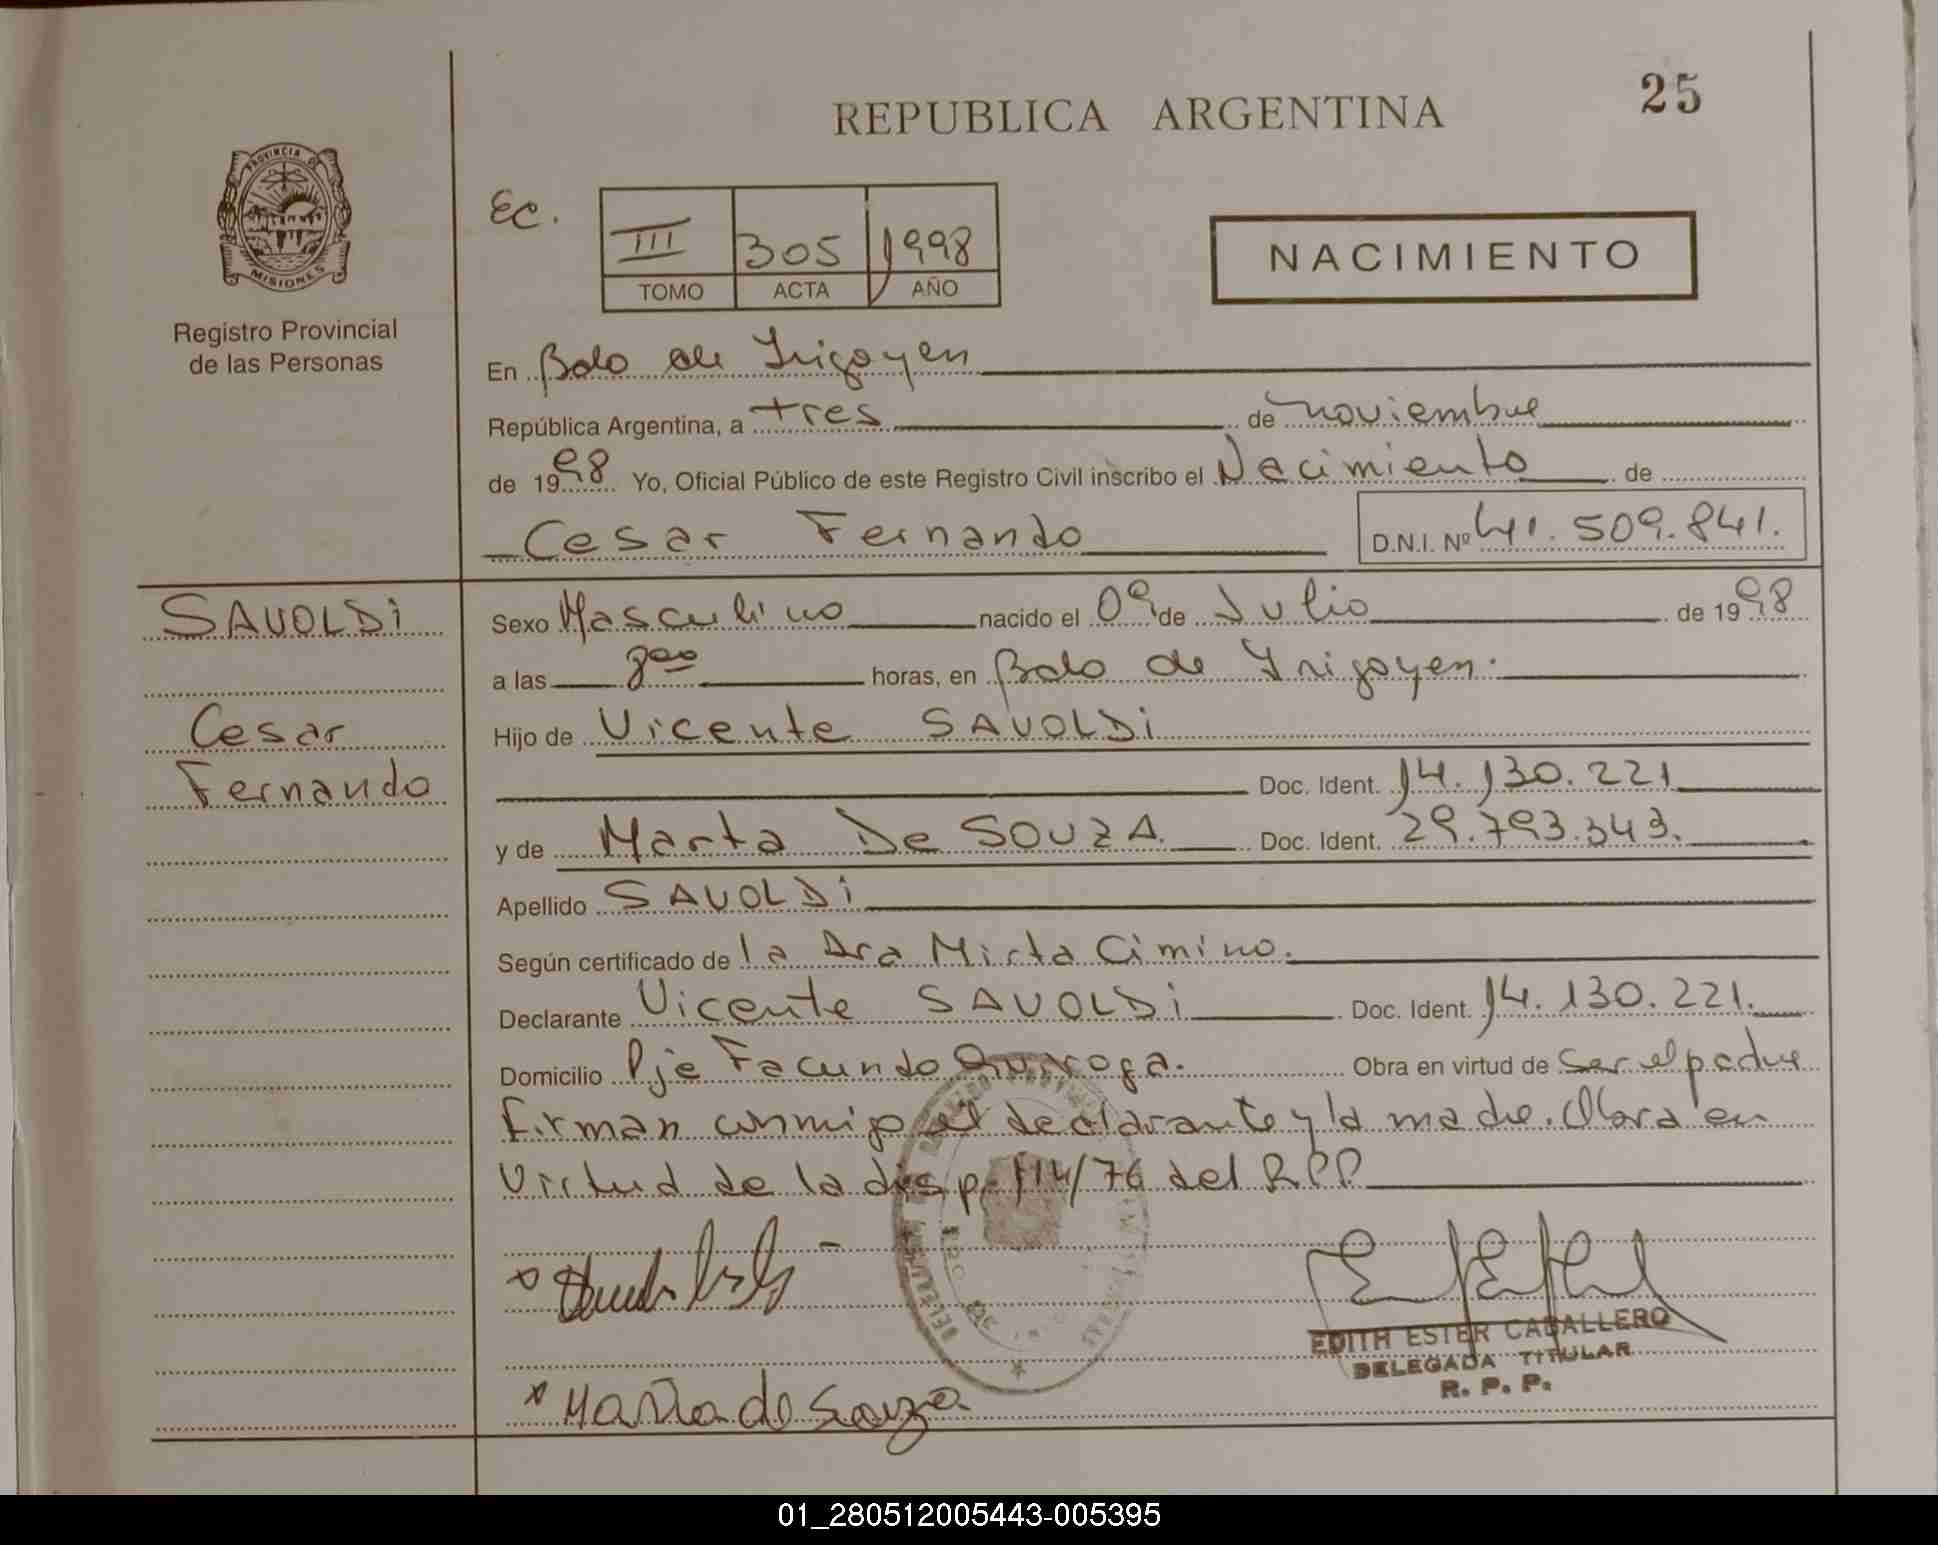 25
REPUBLICA ARGENTINA
PROVINCIA DE
MISIONES
Registro Provincial
de las Personas
Ec.
III 305 1998
TOMO ACTA AÑO
NACIMIENTO
En Bdo de Irigoyen
República Argentina, a tres de noviembre
de 1998 Yo, Oficial Público de este Registro Civil inscribo el Nacimiento de
Cesar Fernando D.N.I. Nº 41.509.841.
SAVOLDi
Cesar
Fernando
Sexo Masculino nacido el 09 de Julio de 1998
a las 8 00 horas, en Bdo de Yrigoyen.
Hijo de Vicente SAVOLDi
Doc. Ident. 14.130.221
y de Marta De SOUZA Doc. Ident. 29.793.343.
Apellido SAVOLDi
Según certificado de la Dra Mirta Cimino.
Declarante Vicente SAVOLDi Doc. Ident. 14.130.221.
Domicilio Pje Facundo Quiroga. Obra en virtud de ser el padre
firman conmigo el declarante y la madre. Obra en
virtud de la disp. 114/76 del RPP
x Marta de Souza
EDITH ESTER CABALLERO
DELEGADA TITULAR
R. P. P.
01_280512005443-005395